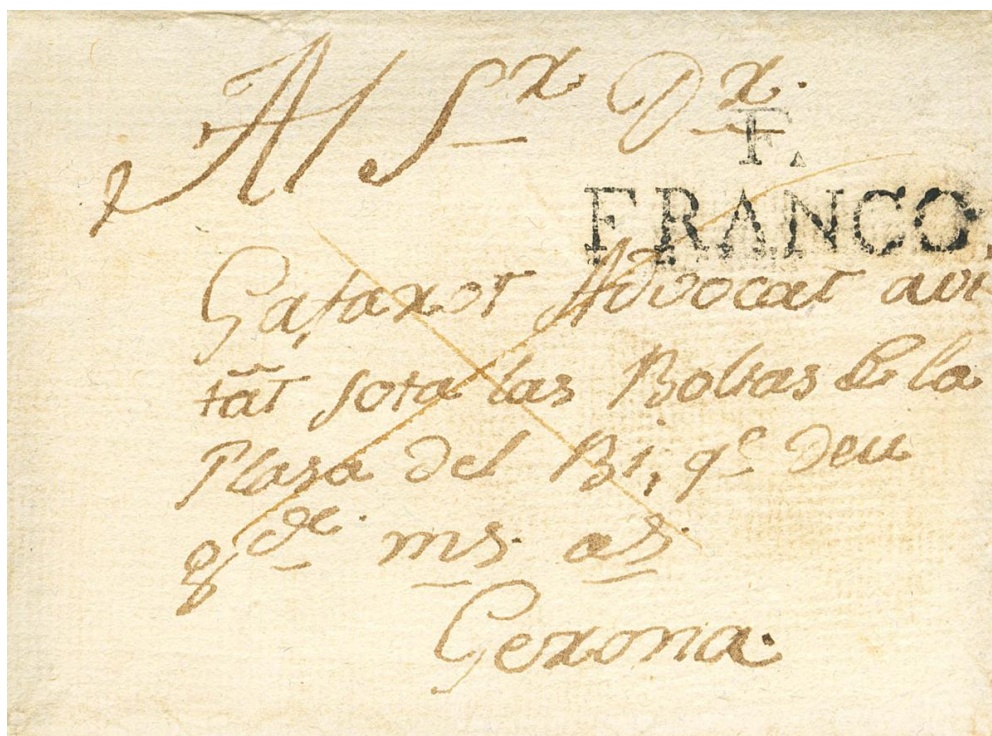 Al S.r D.r
F.
FRANCO.
Gafarot Advocat avi
tat sota las Boltas de la
Plasa del Bi, q.e Deu
g.de m.s a.s
Gerona.